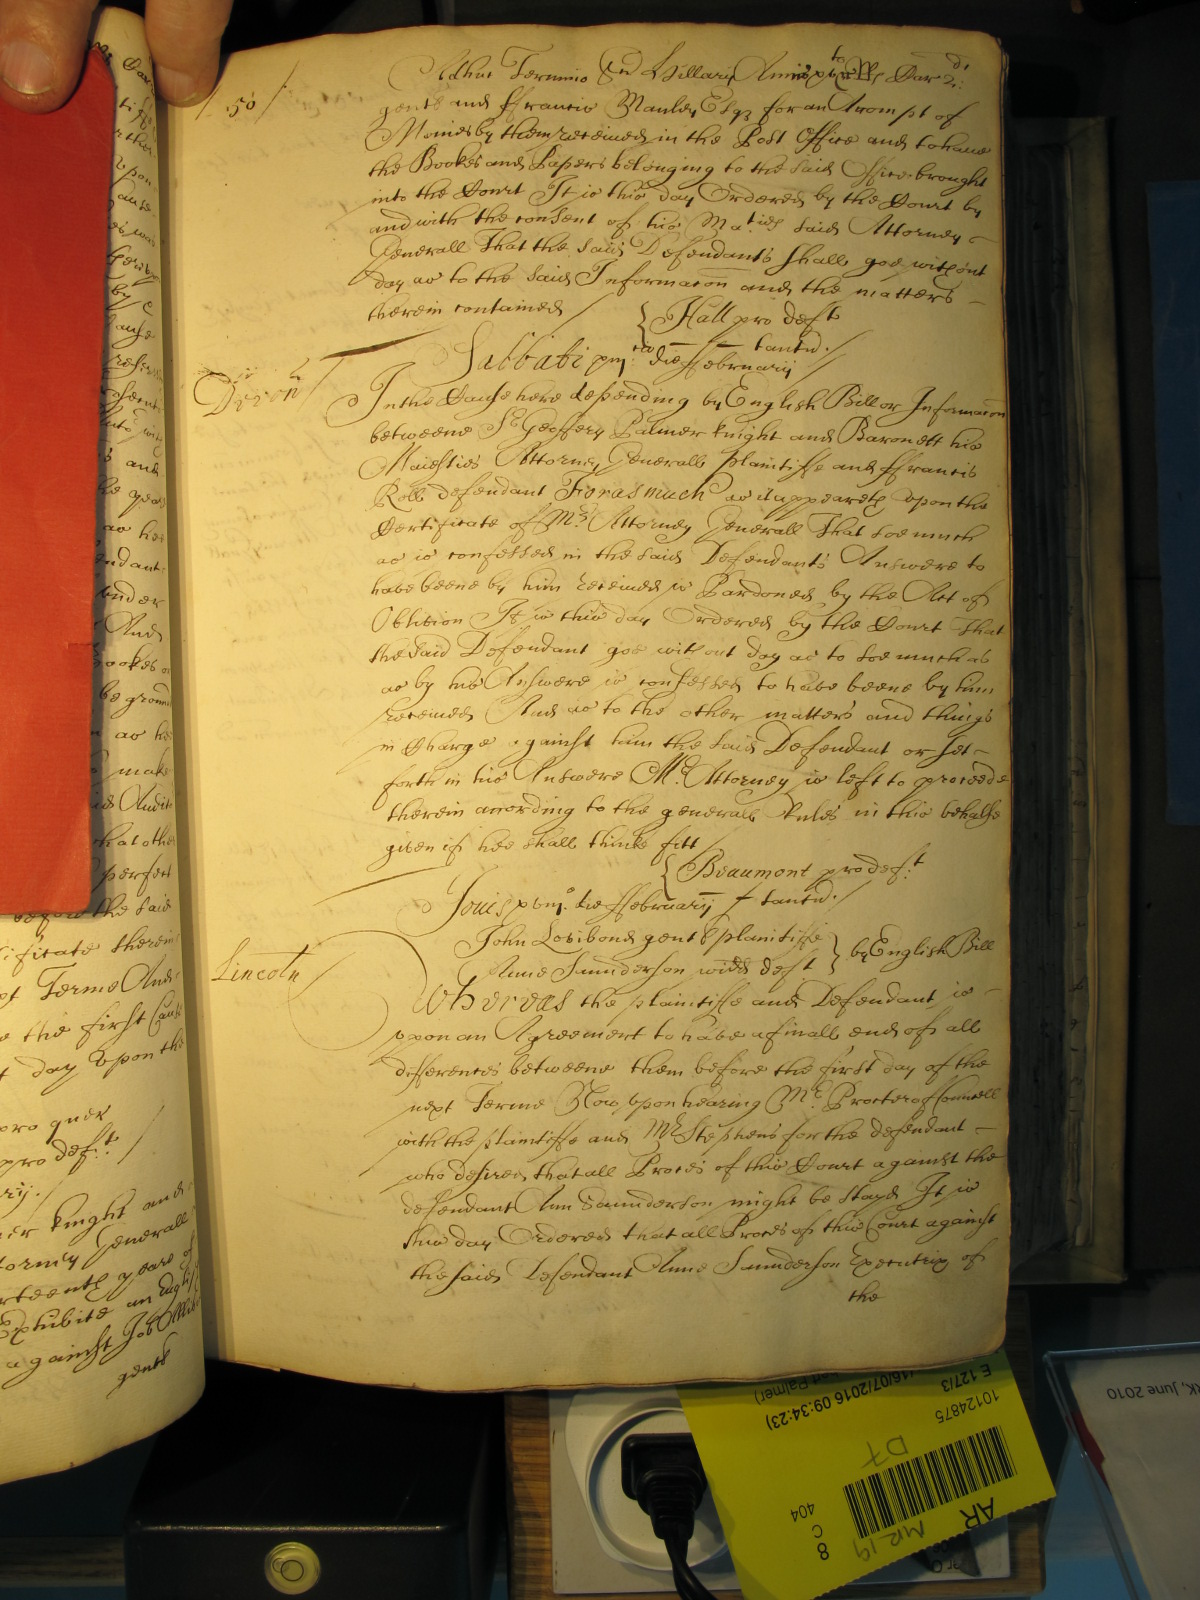 50
Adhuc Termino Sci Hillarij Annis xvto & xvjto R Rs Car 2di:
gents and ffrancis Manley Esqr for an Accompt of
Monies by them received in the Post Office and to have
the Bookes and Papers belonging to the said Office brought
into the Court It is this day Ordered by the Court by
and with the consent of his Maties said Attorney
Generall That the said Defendants shall goe without
day as to the said Informacon and the matters
therein contained
Hall pro deft
tantu.
Sabbati die ffebruarij
Devon
In the Cause here depending by English Bill or Informacon
betweene Sr Geoffery Palmer knight and Baronett his
Maiesties Attorney Generall plaintiffe and ffrancis
Roll defendant Forasmuch as it appeareth upon the
Certificate of Mr Attorney Generall That soe much
as is confessed in the said Defendants Answere to
have beene by him received is Pardoned by the Act of
Oblivion It is this day Ordered by the Court That
the said Defendant goe without day as to soe much as
as by his Answere is confessed to have beene by him
received And as to the other matters and things
in Charge against him the said Defendant or set
forth in his Answere Mr Attorney is left to proceede
therein according to the generall Rules in this behalfe
given if hee shall thinke fitt
Beaumont pro deft
Jouis xvmo. die ffebruarij tantu.
Lincoln
John Lovibond gent plaintiffe
Anne Saunderson widd deft
by English Bill
Whereas the plaintiffe and Defendant is
upon an Agreement to have a finall end of all
differences betweene them before the first day of the
next Terme Now upon hearing Mr Procter of Councell
with the plaintiffe and Mr Stephens for the defendant
who desired that all Proces of this Court against the
defendant Ann Saunderson might be stayd It is
this day Ordered that all Proces of this Court against
the said Defendant Anne Saunderson Executrix of
the
ificate therein
pt Terme And
e the first Cause
t day upon the
pro quer
pro deft.
er knight and
torney Generall
rteenth yeare of
Exhibite an Engl
against Job Alli
gents
E 127/3
10124875
(16/07/2016 09:34:23)
Palmer)
D7
404
C
8
AR
MR 19
RK, June 2010